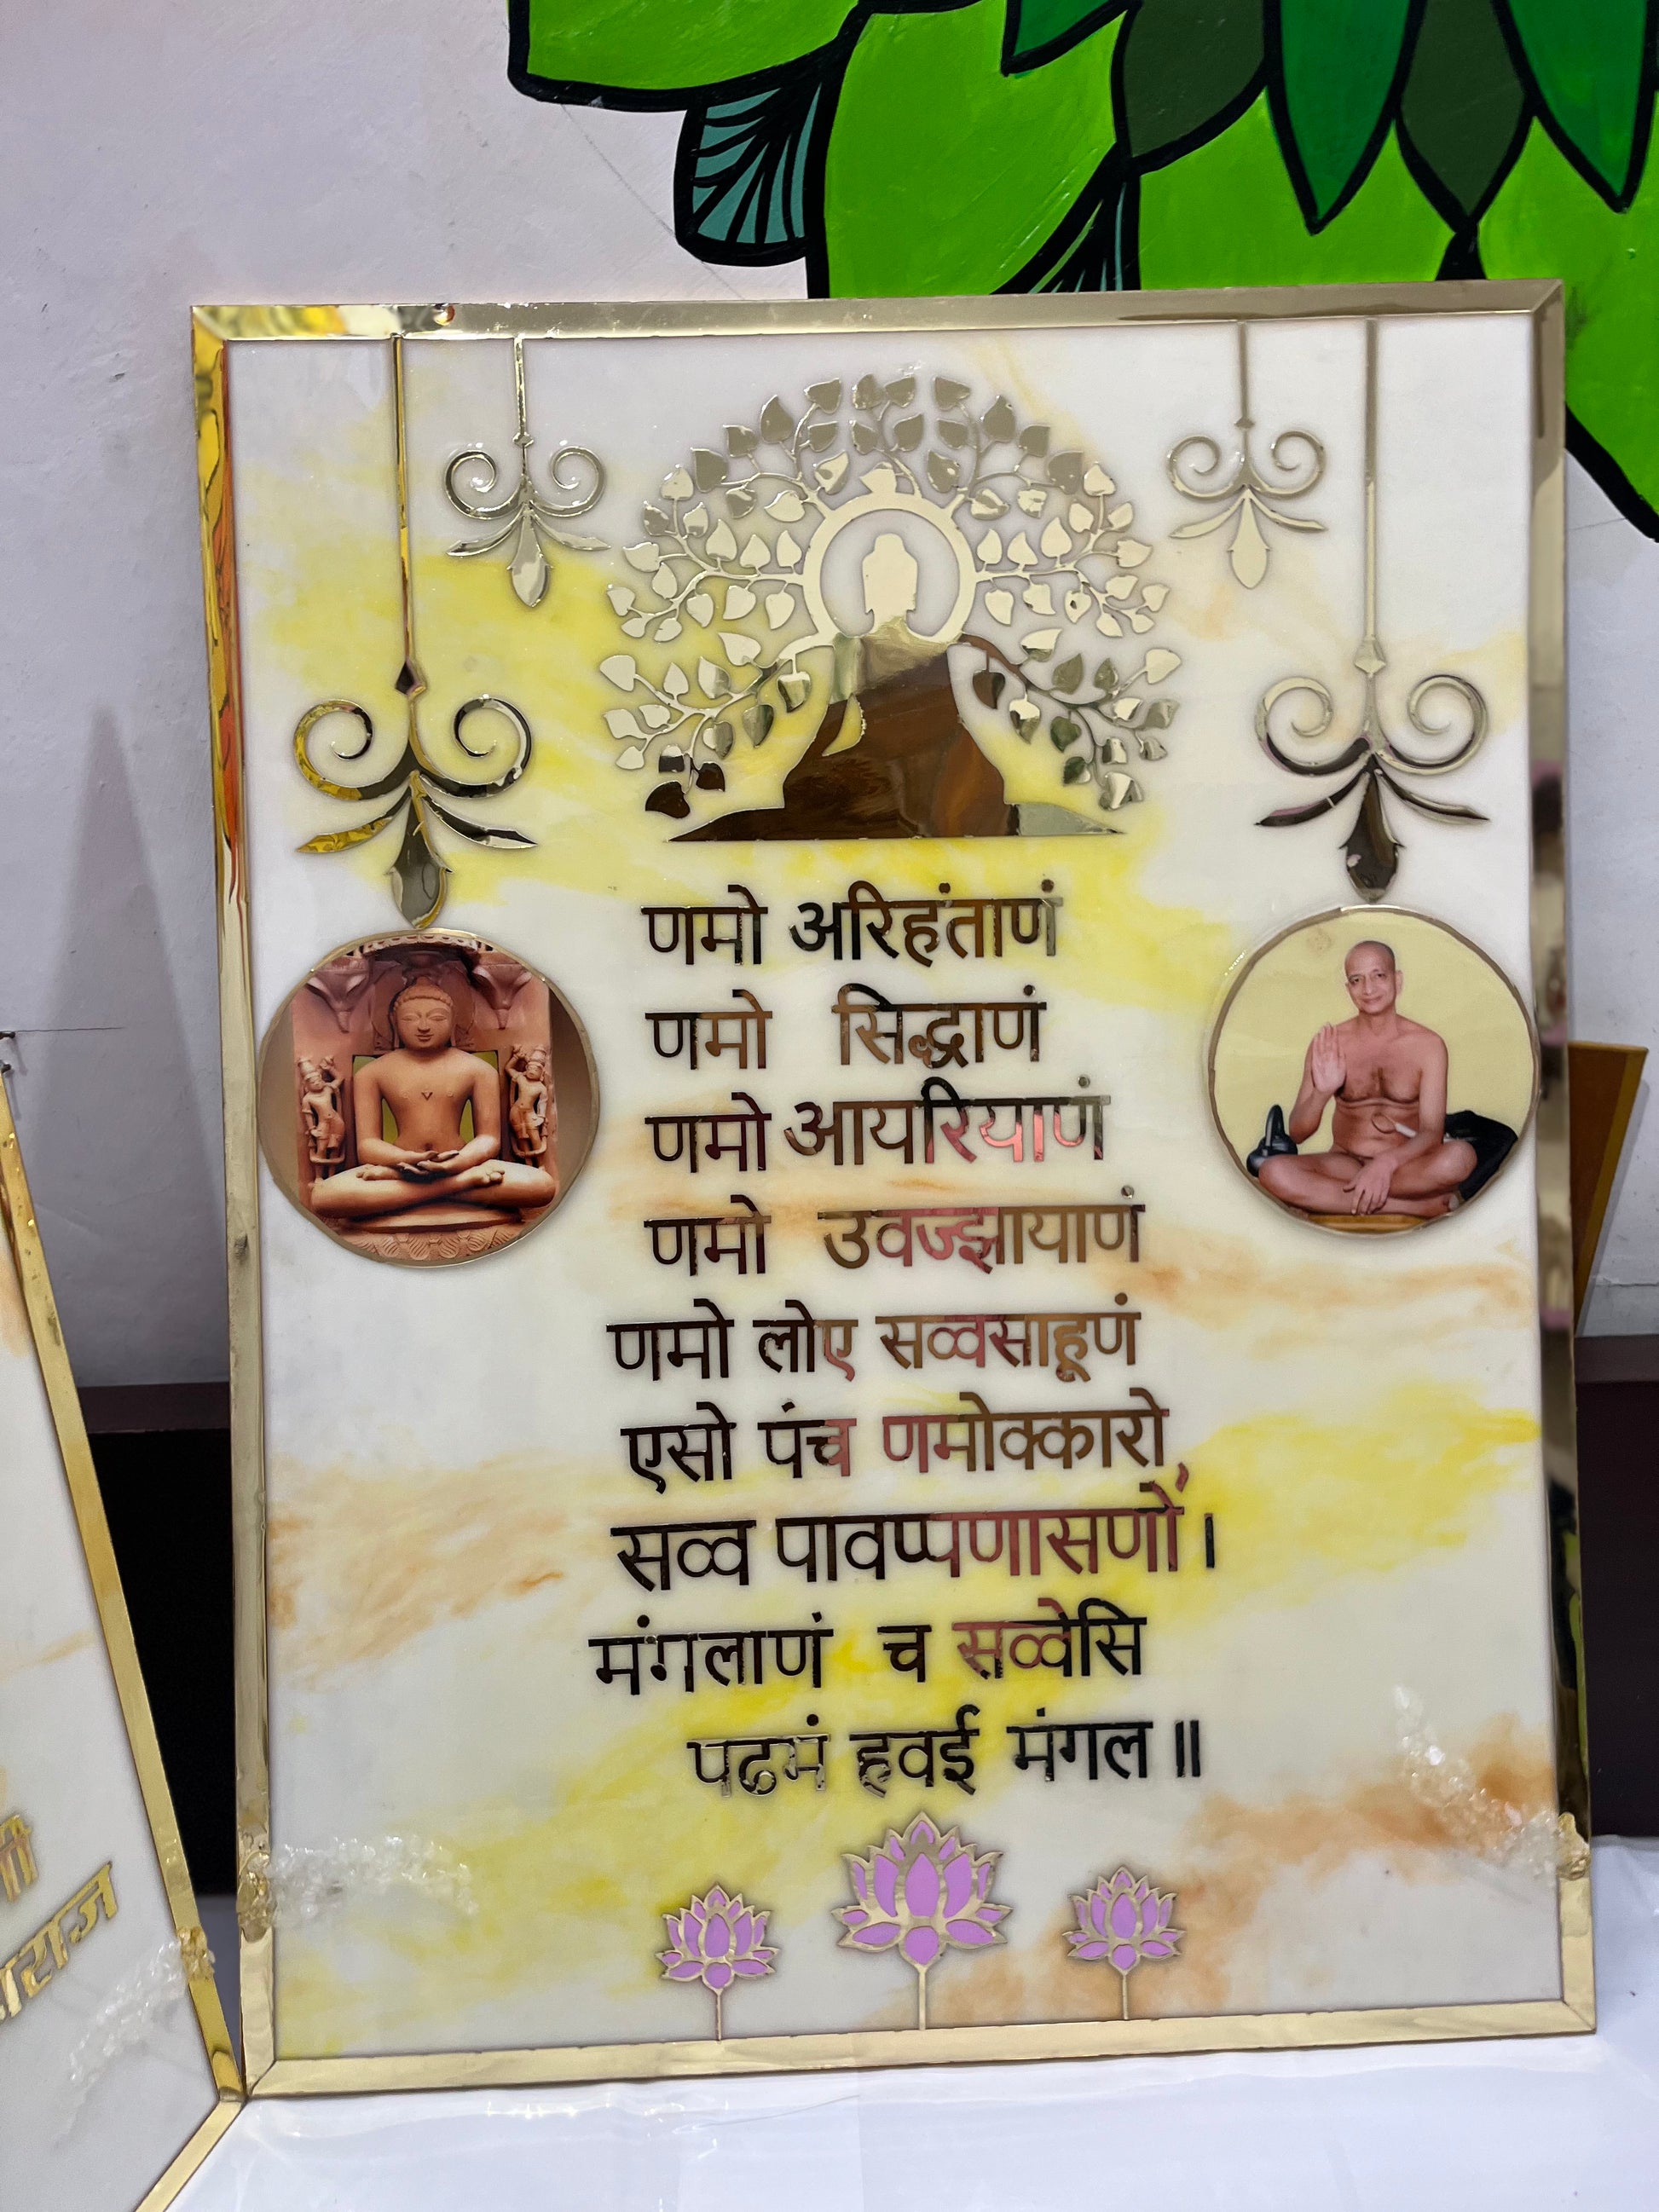 णमो अरिहंताणं
णमो सिद्धाणं
णमो आयरियाणं
णमो उवज्झायाणं
णमो लोए सव्वसाहूणं
एसो पंच णमोक्कारो
सव्व पावप्पणासणो ।
मंगलाणं च सव्वेसि
पढमं हवई मंगल ॥